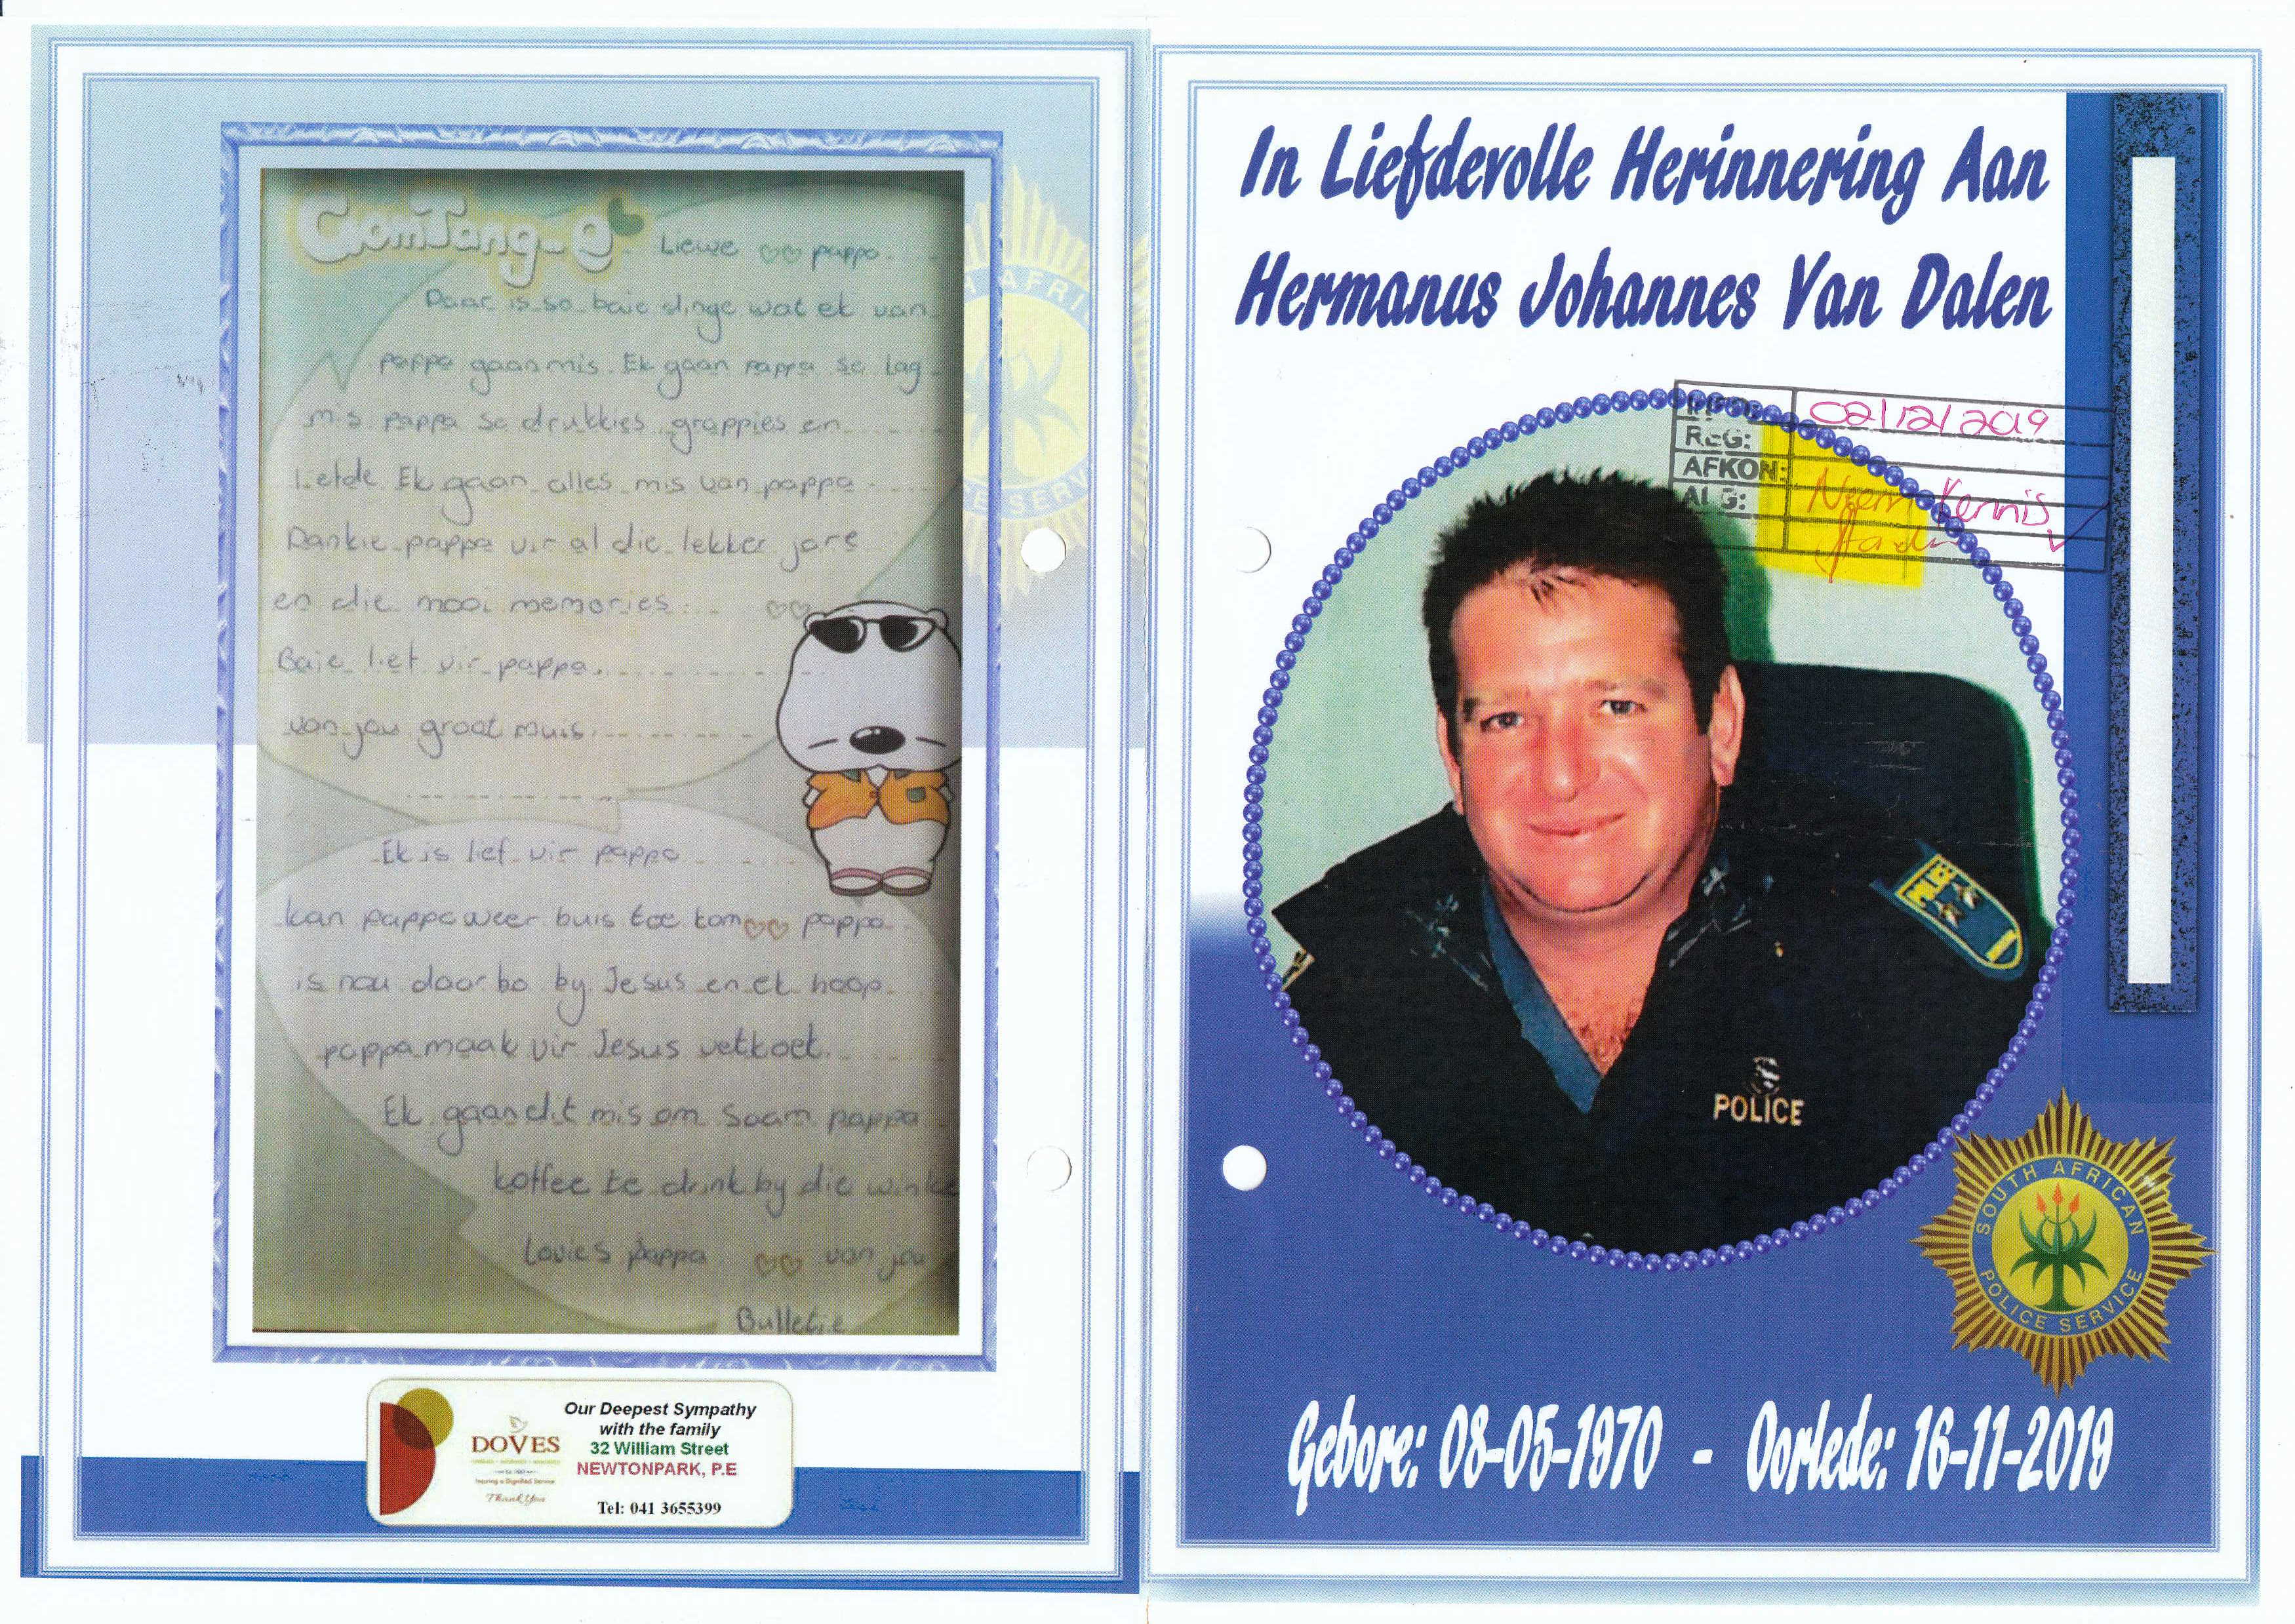 GomTang-e
Liewe pappa
Daar is so baie dinge wat ek van
pappa gaan mis. Ek gaan pappa se lag
mis pappa se drukkies, grappies en
liefde Ek gaan alles mis van pappa
Dankie pappa vir al die lekker jare
en die mooi memories
Baie lief vir pappa.
van jou groot muis.
Ek is lief vir pappa
kan pappa weer huis toe kom pappa
is nou daar bo by Jesus en ek hoop
pappa maak vir Jesus vetkoet.
Ek gaan dit mis om saam pappa
koffee te drink by die winke
Lovies pappa van jou
Bulletjie
H AFRI
CE SERV
DOVES
Inspiring a Dignified Service
Thank You
Our Deepest Sympathy
with the family
32 William Street
NEWTONPARK, P.E
Tel: 041 3655399
In Liefdevolle Herinnering Aan
Hermanus Johannes Van Dalen
02/12/2019
REG:
AFKON:
ALG:
Neem Kennis
POLICE
POLICE
SOUTH AFRICAN
POLICE SERVICE
Gebore: 08-05-1970 - Oorlede: 16-11-2019